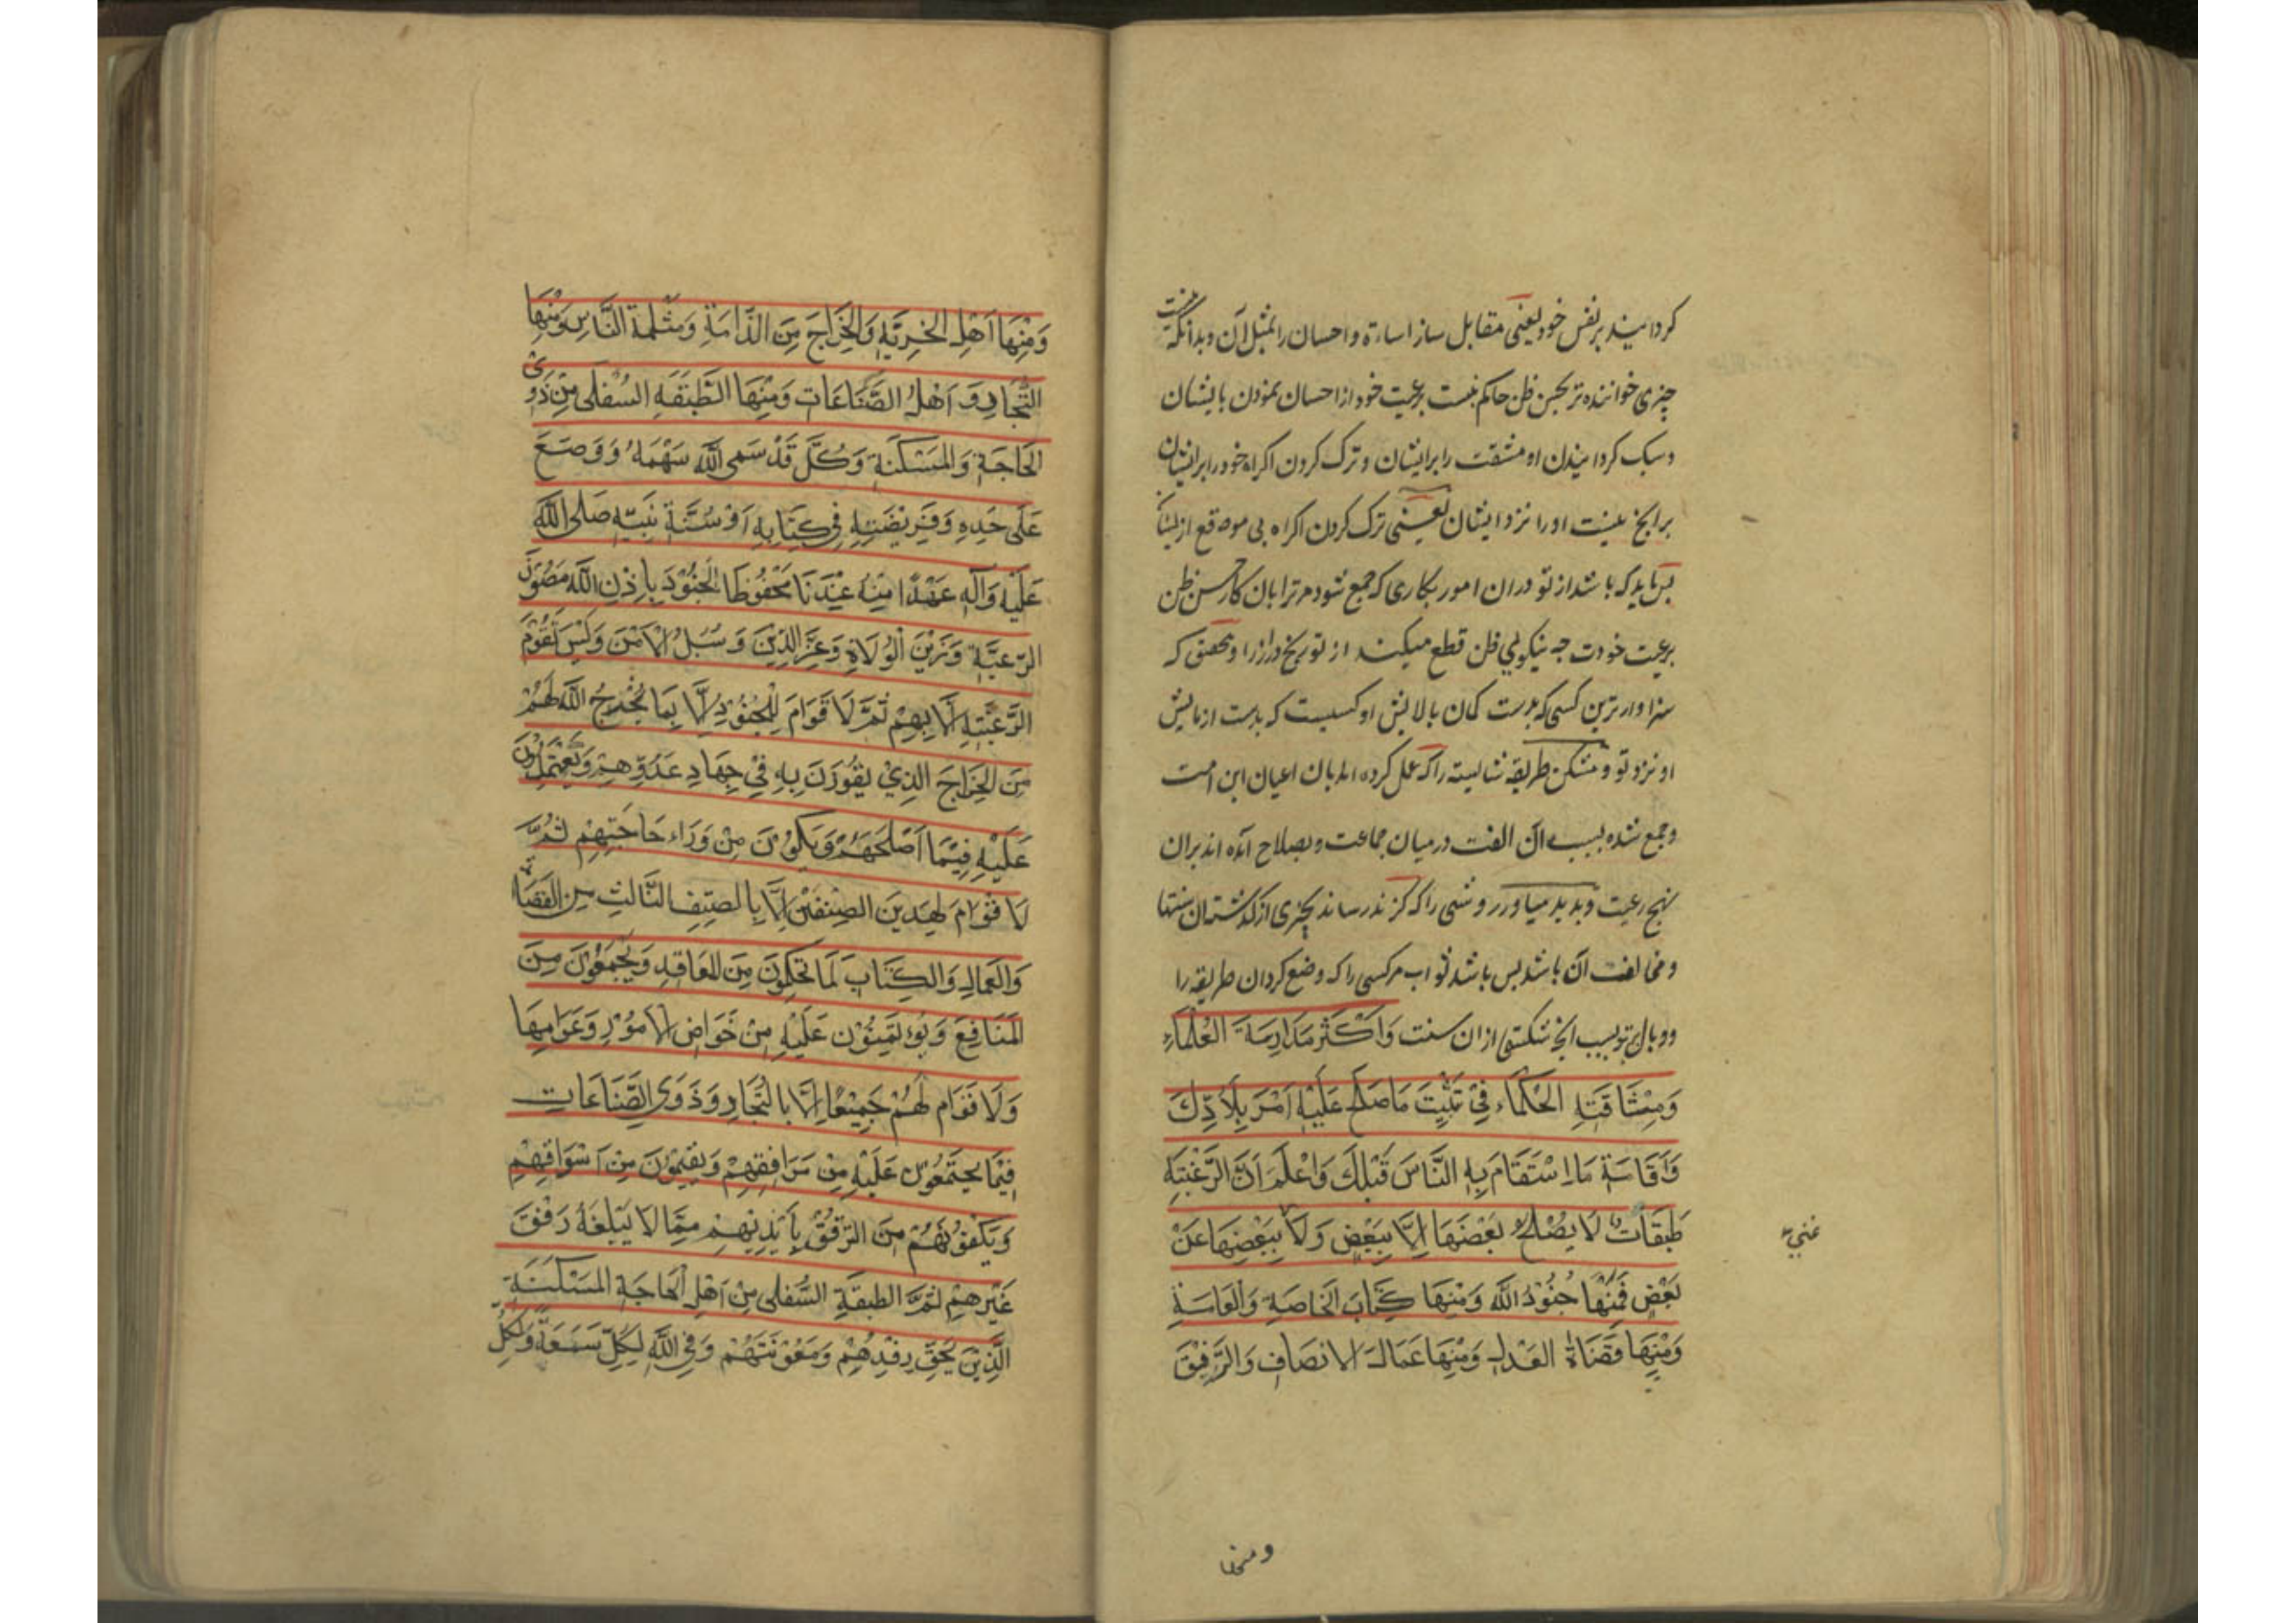 کردانیند بر نفس خود یعنی مقابل ساز اساءة و احسان را بمثل آن و بدانکه نیست
چیزی خواننده تر بحسن ظن حاکم نیست برعیت خود از احسان نمودن بایشان
و سبک کردانیندن او مشقت را بر ایشان و ترک کردن اکراه خود را بر ایشان
بر آنچ نیست او را نزد ایشان یعنی ترک کردن اکراه بی موقع از ایشان
پس باید که باشد از تو در ان امور بکاری که جمع شود مر ترا بان کار حسن ظن
برعیت خودت چه نیکویی ظن قطع میکند از تو رنج دراز را و تحقیق که
سزاوارترین کسی که بدست کمان بالایش او کسیست که بدست ازمایش
او نزد تو و مشکن طریقه شایسته را که عمل کرده اند بان اعیان این امت
و جمع شده بسبب آن الفت در میان جماعت و بصلاح آمده اند بران
نهج رعیت و بدید میاور روشی را که کزند رساند بچیزی از کذشتهان سنتها
و مخالفت آن باشد پس باشد ثواب مر کسی را که وضع کرد ان طریقه را
و وبال بر تو بسبب آنچ شکستی از ان سنت وَاَكْثَرْ مَدَارِسَةَ العُلَمَاءِ
وَمِنْثَاقَتَهِ الْحُكَمَاء فِيْ تَثْبِيْتِ مَا صَلُحَ عَلَيْهِ اَمْرَ بِلَادِكَ
وَاَقَامَةِ مَا اسْتَقَامَ بِهِ النَّاسَ قَبْلِكَ وَاعْلَمَ اَنَّ الرَّعْيَتِه
طَبَقَات لَا يُصْلُحْ بَعْضَهَا اِلَّا بِبَعْضٍ وَلَا بِبَعْضِهَا عَنْ
غنی
بَعْضٍ فَمِنْهَا جُنُوْدُ اللّٰه وَمِنْهَا كِتَابَ الْخَاصَةِ وَالْعَامَةِ
وَمِنْهَا قُضَاةُ العَدْلِ وَمِنْهَا عَمَالَ الانصَافِ وَالرَّفِيْقَ
ومنها
وَمِنْهَا اَهْلِ الجِزِيَةِ وَالْخِرَاجَ مِنَ الذِّامَةِ وَمَسْلَمَةِ النَّاسِ وَمِنْهَا
التُّجَارِ وَ اَهْلُ الصَّنَاعَاتِ وَمِنْهَا الطَّبَقَةِ السُفْلٰى مِنْ ذَوِى
الْحَاجَةِ وَالْمَسْكَنَةِ وَكُلَّ قَدْ سَمى اللّٰه سَهْمَهُ وَوَضَعَ
عَلٰى حَدِهِ وَفَرِيْضَتِهِ فِيْ كِتَابِهِ اَوْ سُنَّةِ نَبِيّهِ صَلى اللّٰه
عَلَيْهِ وَآلِهِ عَهْدًا مِنْهُ عِنْدَنَا مَحْفُوْظًا الْجُنُوْدَ بِاِذْنِ اللّٰه حَصُوْنَ
الرّعِيَّةِ وَزَيْنَ الْوُلَاةِ وَعِزَّ الدِّيْنَ وَسُبُلُ الْاَمْنَ وَلَيْسَ تَقُوْمَ
الرَّعِيَّتِهِ اِلَّا بِهِمْ ثُمَّ لَا قَوَامَ لِلْجُنُوْدِ اِلَّا بِمَا يُخْرِجُ اللّٰه لَهُمْ
مِنَ الْخِرَاجَ الَّذِيْ يَقُوْوَنَ بِهِ فِيْ جِهَادِ عَدُوِّهِمْ وَيَعْتَمِلُوْنَ
عَلَيْهِ فِيْمَا اَصْلَحَهُمْ وَيَكُوْنَ مِنْ وَرَاء حَاجَتِهِمْ ثُمَّ
لَا قَوَامَ لِهٰذَيْنَ الصِنْفَيْنِ اِلَّا بِالصِنْفِ الثَّالِثِ مِنَ القَضَاة
وَالْعَمَالِ وَالكِتَابَ لَمَا تَحْكِمُوْنَ مِنَ الْمعَاقِدِ وَيَجْمَعُوْنَ مِنَ
الْمَنَافِعَ وَيُؤْتَمِنُوْنَ عَلَيْهِ مِنْ خَوَاصِ الْاُمُوْرِ وَعَوَامِهَا
وَلَا قَوَام لَهُمْ جَمِيْعًا اِلَّا بِالْتُجَارِ وَذَوِى الصَّنَاعَاتِ
فِيْمَا يَجْتَمَعُوْنَ عَلَيْهِ مِنْ مَرَافِقِهِمْ وَيُقِيْمُوْنَ مِنْ اَسْوَاقِهِمْ
وَيَكْفُوْنَهُمْ مِنَ التَرَفُّقُ بِاَيْدِيْهِمْ مِمَّا لَا يَبْلَغَهُ رَفْقَ
غَيْرِهِمْ ثُمَّ الطبقَةِ السُّفْلٰى مِنْ اَهْلِ الْحَاجَةِ المَسْكَنَةِ
الَّذِيْنَ يَحِقّ رِفْدِهُمْ وَمَعُوْنَتَهُمْ وَفِى اللّٰهِ لِكُلِّ سَعَةً وَلِكُلِّ